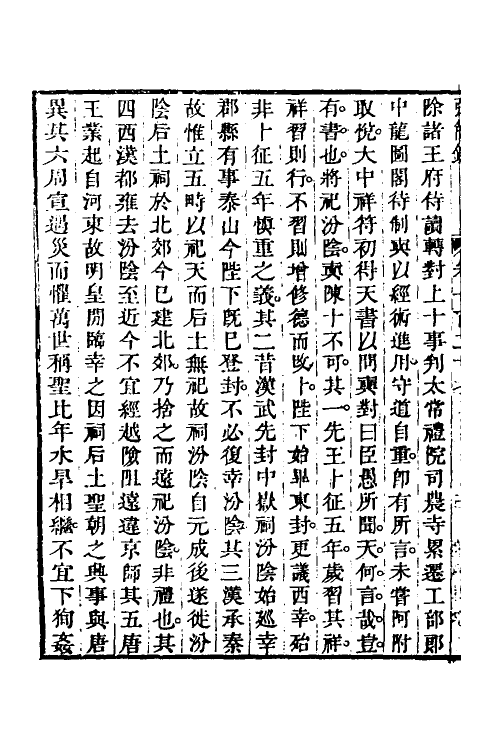 除諸王府侍讀轉對上十事判太常禮院司農寺累遷工部郎
中龍圖閣待制奭以經術進用守道自重即有所言未嘗阿附
取悅大中祥符初得天書以問奭對曰臣愚所聞天何言哉豈
有書也將祀汾陰奭陳十不可其一先王卜征五年歲習其祥
祥習則行不習則增修德而改卜陛下始畢東封更議西幸殆
非卜征五年慎重之義其二昔漢武先封中嶽祠汾陰始巡幸
郡縣有事泰山今陛下旣巳登封不必復幸汾陰其三漢承秦
故惟立五畤以祀天而后土無祀故祠汾陰自元成後遂徙汾
陰后土祠於北郊今巳建北郊乃捨之而遠祀汾陰非禮也其
四西漢都雍去汾陰至近今不宜經越險阻遠違京師其五唐
王業起自河東故明皇開臨幸之因祠后土聖朝之興事與唐
異其六周宣遇災而懼萬世稱聖比年水旱相繼不宜下徇姦